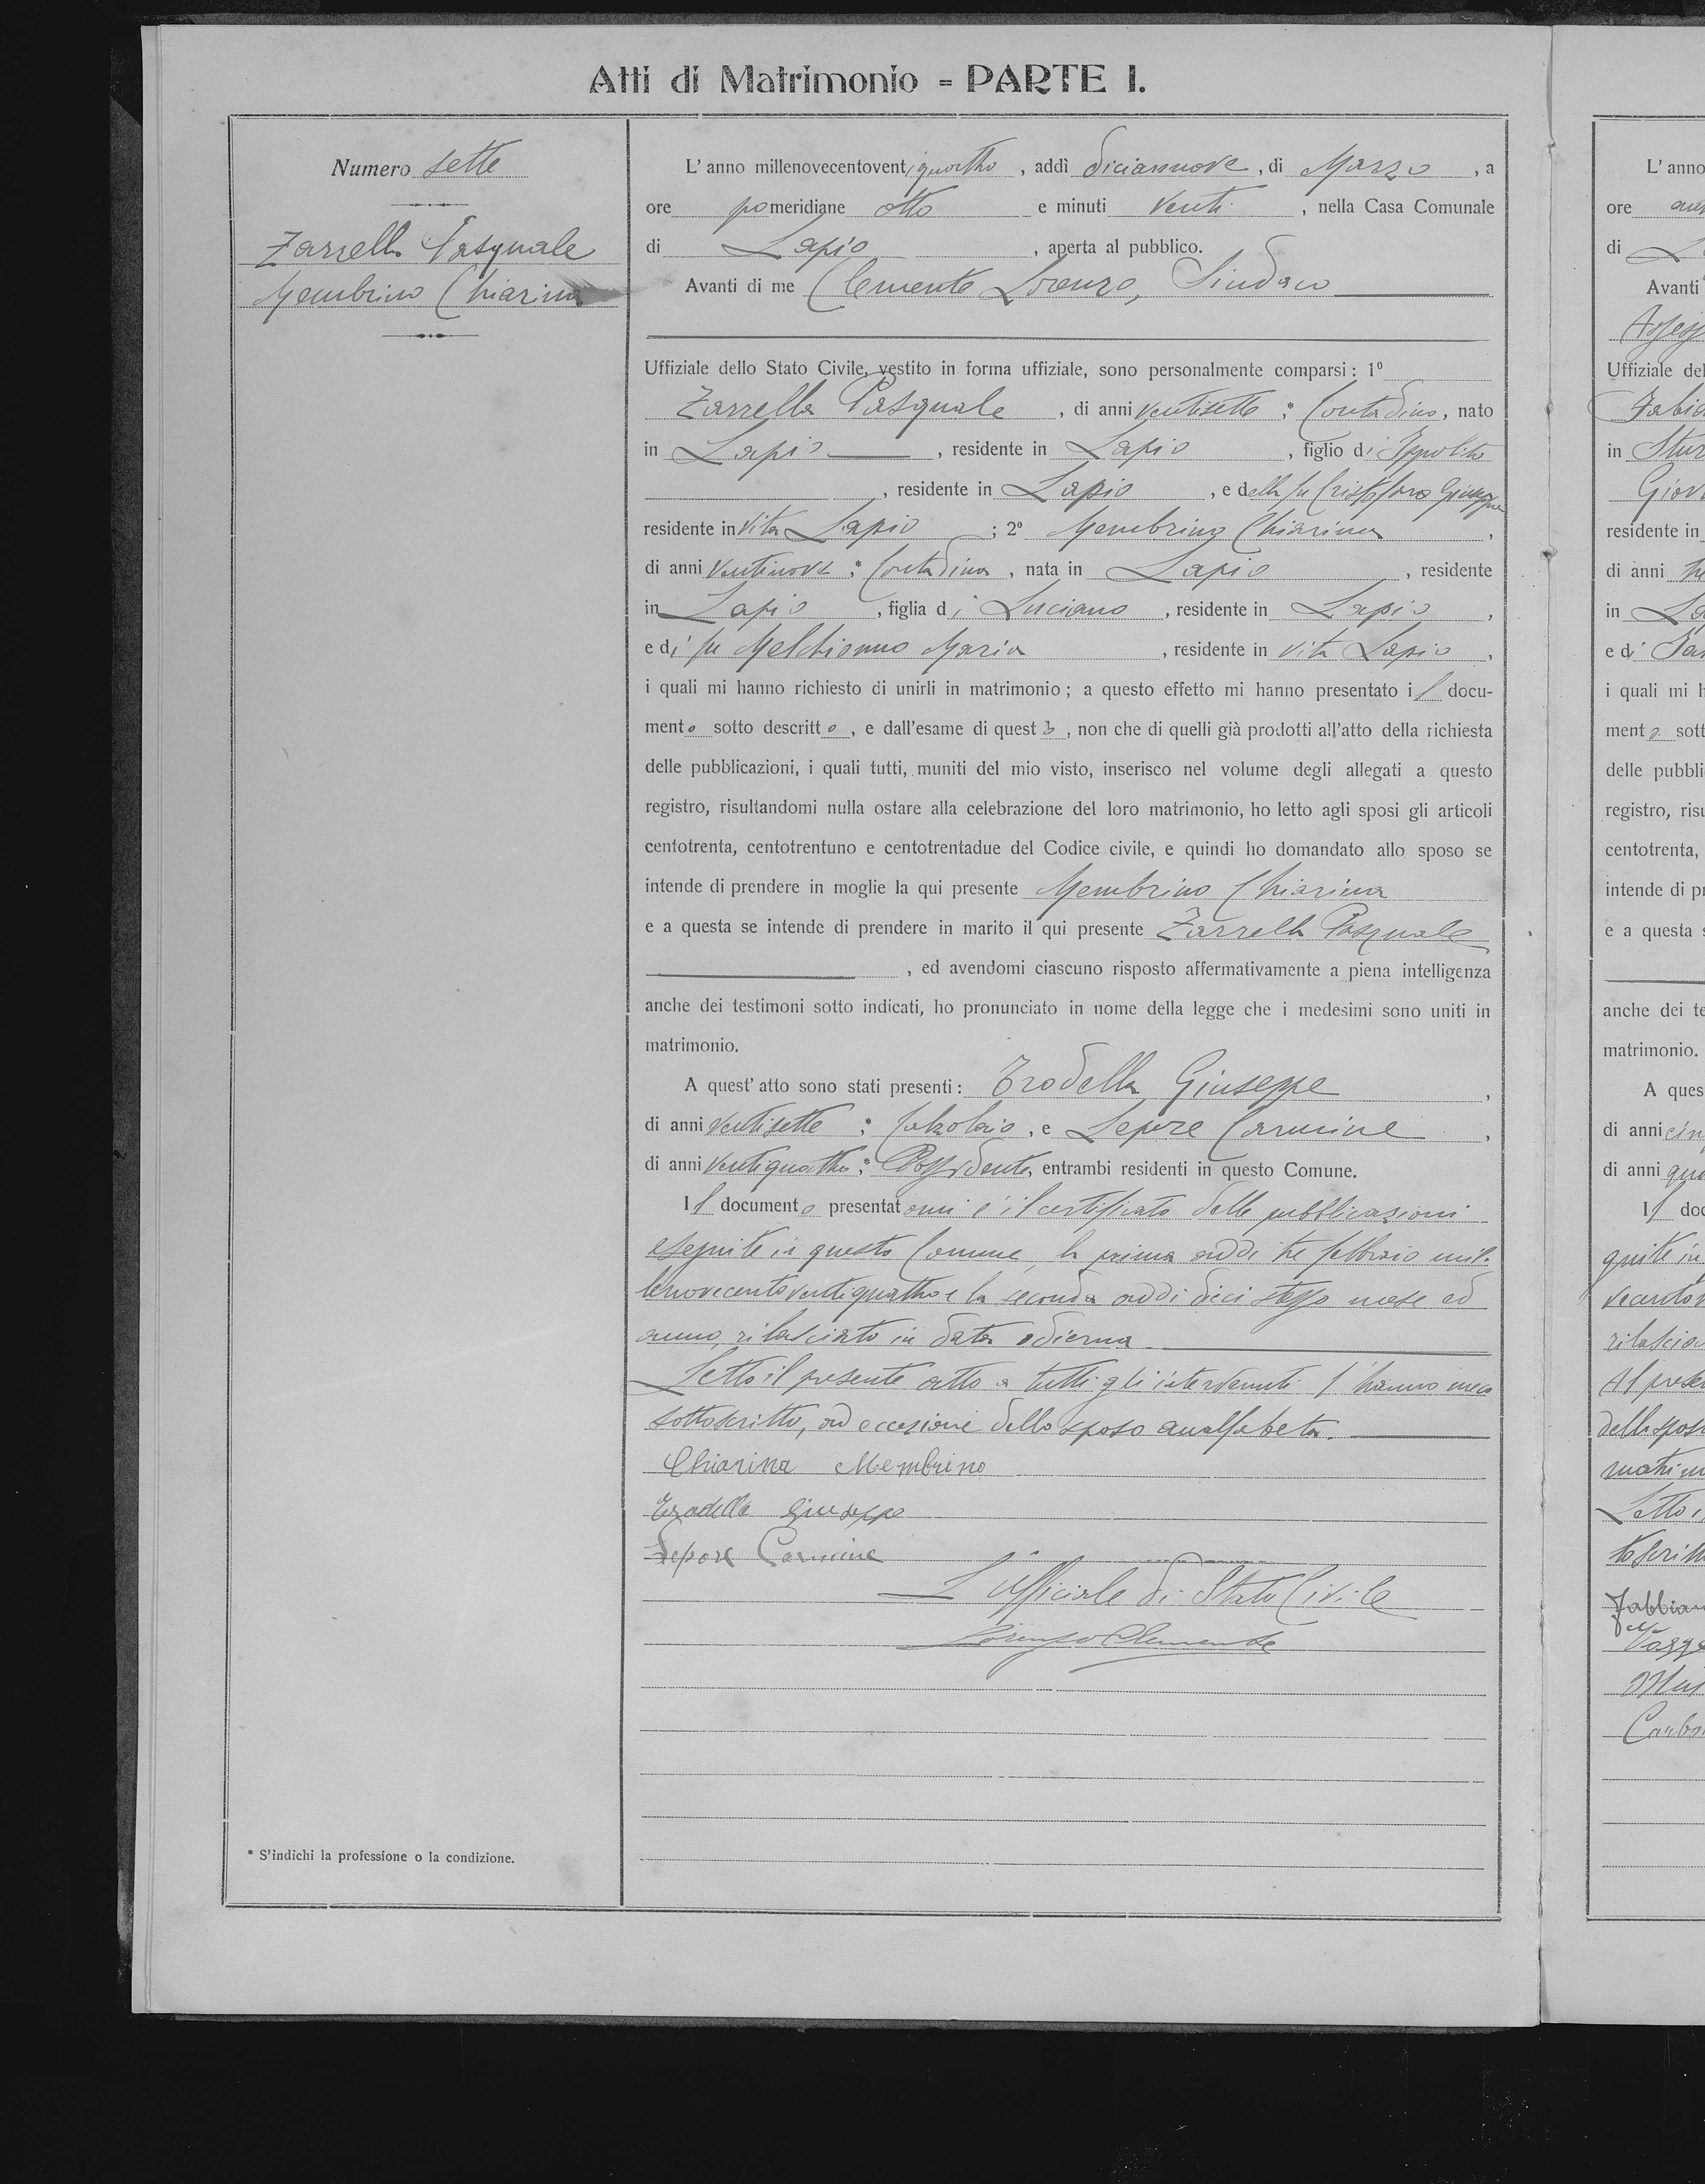 Atti di Matrimonio = PARTE I.
Numero sette
Zarrella Pasquale
Membrino Chiarina
L'anno millenovecentoventiquattro, addì diciannove, di Marzo, a
ore pomeridiane otto e minuti venti, nella Casa Comunale
di Lapio, aperta al pubblico.
Avanti di me Clemente Lorenzo, Sindaco
Uffiziale dello Stato Civile, vestito in forma uffiziale, sono personalmente comparsi: 1º
Zarrella Pasquale, di anni ventisette * Contadino, nato
in Lapio, residente in Lapio, figlio di Ippolito
, residente in Lapio, e della fu Cristofaro Giuseppa
residente in vita Lapio; 2º Membrino Chiarina,
di anni ventinove * Contadina, nata in Lapio, residente
in Lapio, figlia di Luciano, residente in Lapio,
e di fu Melchionno Maria, residente in vita Lapio,
i quali mi hanno richiesto di unirli in matrimonio; a questo effetto mi hanno presentato il docu-
mento sotto descritto, e dall'esame di questo, non che di quelli già prodotti all'atto della richiesta
delle pubblicazioni, i quali tutti, muniti del mio visto, inserisco nel volume degli allegati a questo
registro, risultandomi nulla ostare alla celebrazione del loro matrimonio, ho letto agli sposi gli articoli
centotrenta, centotrentuno e centotrentadue del Codice civile, e quindi ho domandato allo sposo se
intende di prendere in moglie la qui presente Membrino Chiarina
e a questa se intende di prendere in marito il qui presente Zarrella Pasquale
, ed avendomi ciascuno risposto affermativamente a piena intelligenza
anche dei testimoni sotto indicati, ho pronunciato in nome della legge che i medesimi sono uniti in
matrimonio.
A quest'atto sono stati presenti: Trodella Giuseppe,
di anni ventisette * Calzolaio, e Lepore Carmine,
di anni ventiquattro * Possidente, entrambi residenti in questo Comune.
Il documento presentatomi è il certificato delle pubblicazioni
eseguite in questo Comune, la prima addì tre febbraio mil-
lenovecentoventiquattro e la seconda addì dieci stesso mese ed
anno, rilasciato in data odierna
Letto il presente atto a tutti gli intervenuti l'hanno meco
sottoscritto, ad eccezione dello sposo analfabeta.
Chiarina Membrino
Trodella Giuseppe
Lepore Carmine
L'Ufficiale di Stato Civile
Lorenzo Clemente
* S'indichi la professione o la condizione.
L'anno
ore
di
Avanti
Uffiziale del
in
residente in
di anni
in
e di
i quali mi h
mento sott
delle pubbli
registro, risu
centotrenta,
intende di pr
e a questa s
anche dei te
matrimonio.
A ques
di anni
di anni
Il doc